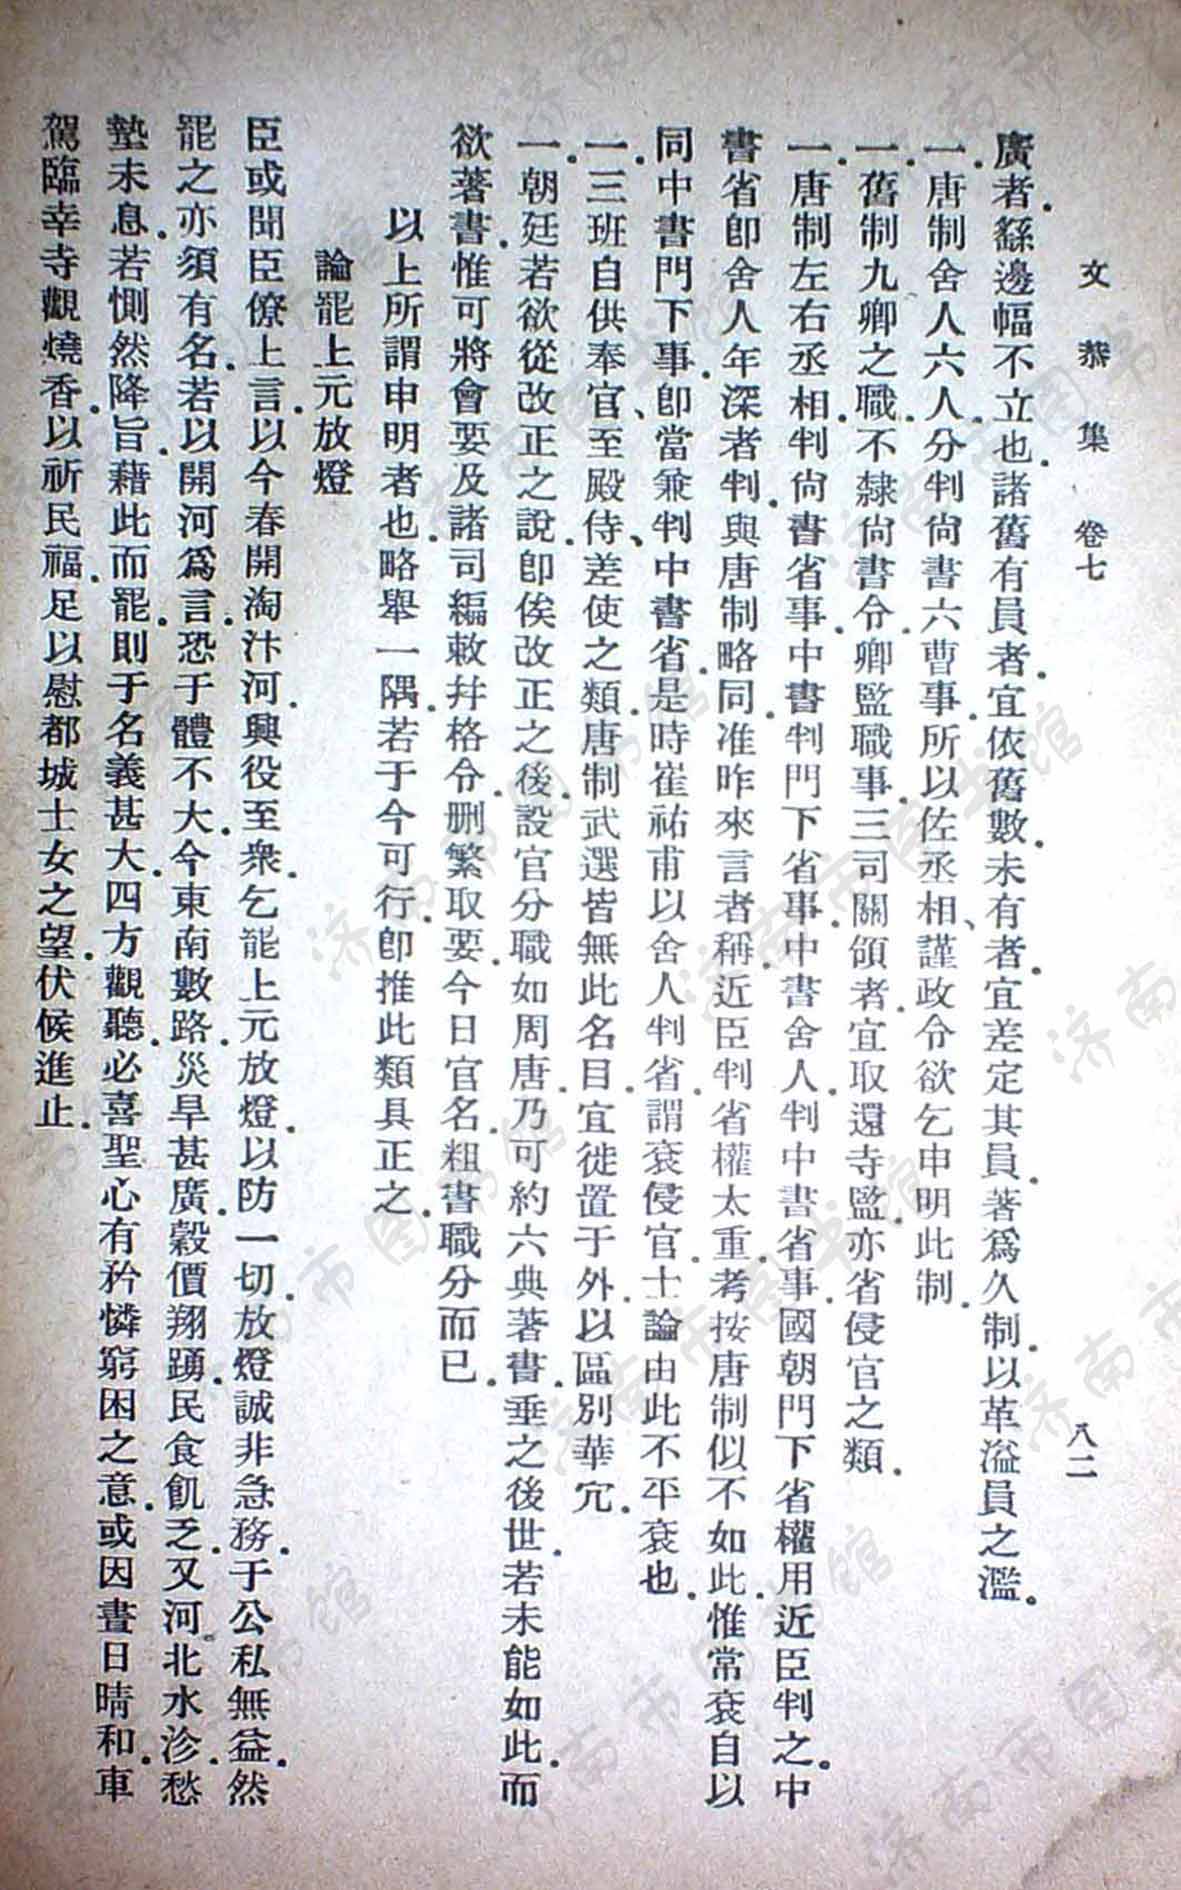 文恭集 卷七 八二
廣者。繇邊幅不立也。諸舊有員者。宜依舊數。未有者。宜差定其員。著爲久制。以革溢員之濫。
一。唐制舍人六人。分判尙書六曹事。所以佐丞相、謹政令。欲乞申明此制。
一。舊制九卿之職。不隸尙書。今卿監職事。三司關領者。宜取還寺監。亦省侵官之類。
一。唐制左右丞相。判尙書省事。中書判門下省事。中書舍人。判中書省事。國朝門下省權用近臣判之。中
書省卽舍人年深者判。與唐制略同。准昨來言者稱。近臣判省權太重。考按唐制似不如此。惟常袞自以
同中書門下事。卽當兼判中書省。是時崔祐甫以舍人判省。謂袞侵官。士論由此不平袞也。
一。三班自供奉官、至殿侍、差使之類。唐制武選皆無此名目。宜徙置于外。以區別華冗。
一。朝廷若欲從改正之說。卽俟改正之後。設官分職如周唐。乃可約六典著書。垂之後世。若未能如此。而
欲著書。惟可將會要及諸司編敕幷格令。刪繁取要。今日官名。粗書職分而已。
以上所謂申明者也。略舉一隅。若于今可行。卽推此類具正之。
論罷上元放燈
臣或聞臣僚上言。以今春開淘汴河。興役至衆。乞罷上元放燈。以防一切。放燈誠非急務。于公私無益。然
罷之亦須有名。若以開河爲言。恐于體不大。今東南數路。災旱甚廣。穀價翔踴。民食飢乏。又河北水沴。愁
墊未息。若惻然降旨。藉此而罷。則于名義甚大。四方觀聽。必喜聖心有矜憐窮困之意。或因晝日晴和。車
駕臨幸寺觀燒香。以祈民福。足以慰都城士女之望。伏候進止。
济南市图书馆